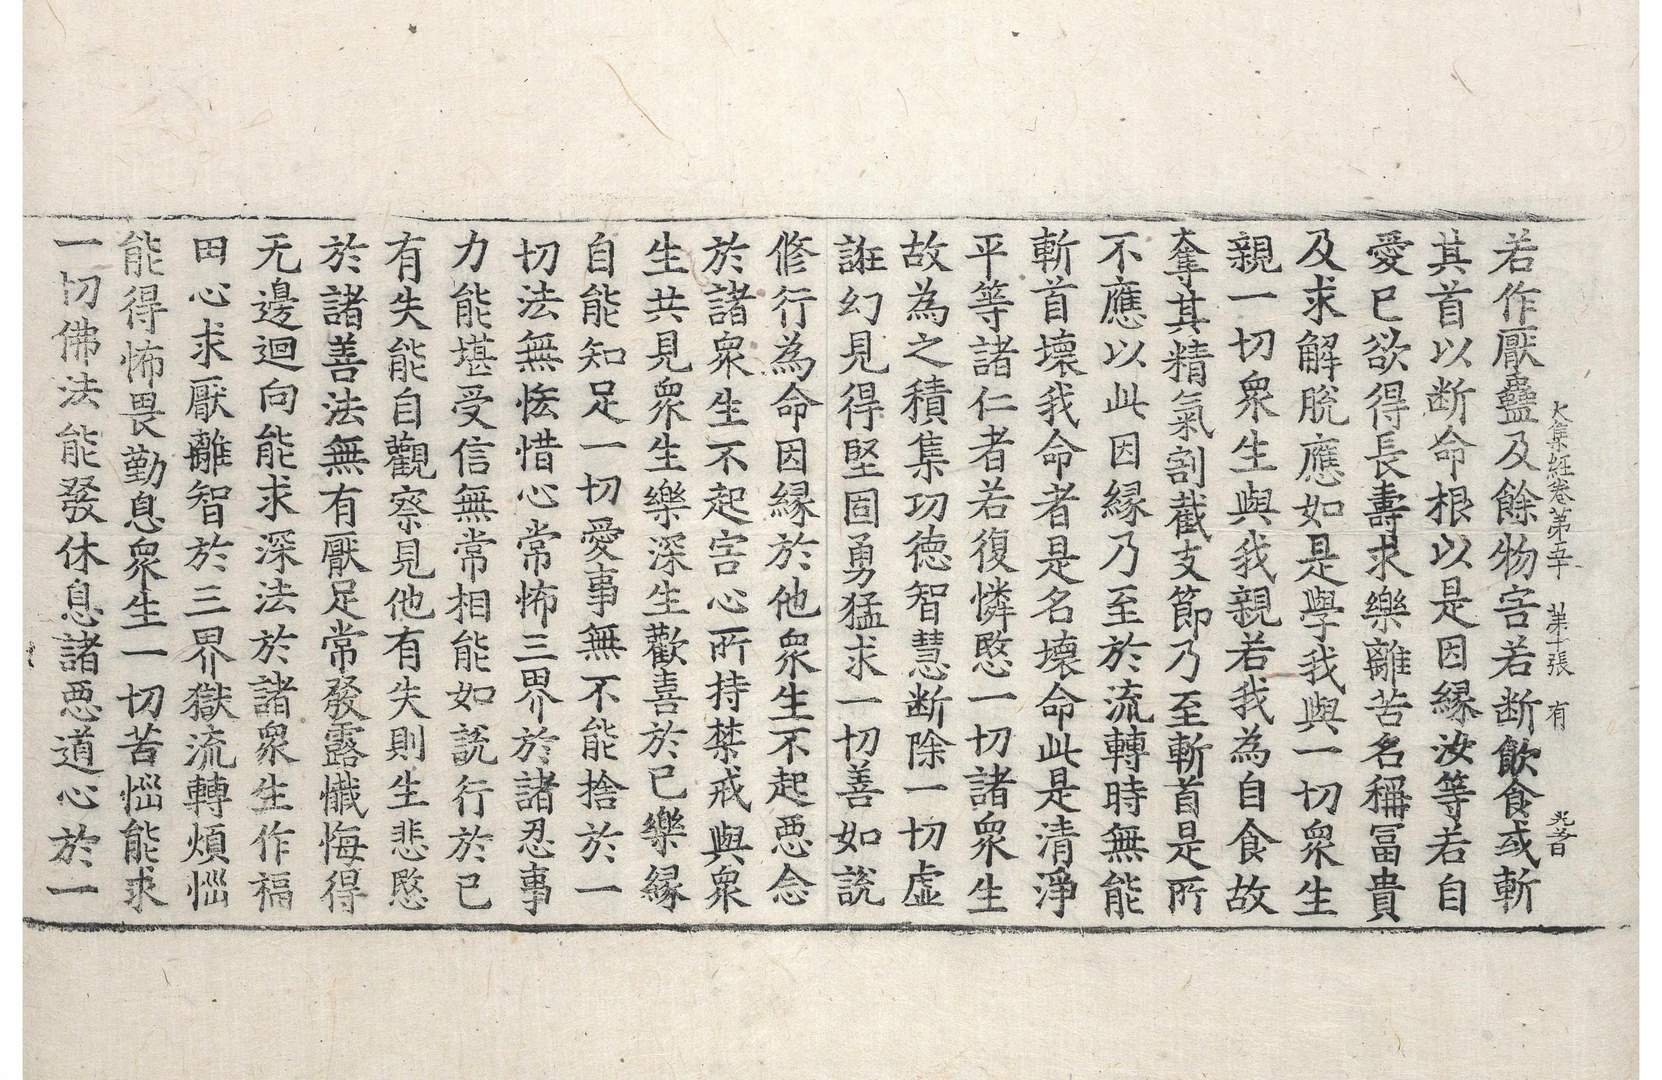 大集經卷第五十 第十張 有
若作厭蠱及餘物害若断飲食或斬
其首以断命根以是因縁汝等若自
愛已欲得長壽求樂離苦名稱冨貴
及求解脫應如是學我與一切衆生
親一切衆生與我親若我為自食故
奪其精氣割截支節乃至斬首是所
不應以此因縁乃至於流轉時無能
斬首壞我命者是名壞命此是清淨
平等諸仁者若復憐愍一切諸衆生
故為之積集功德智慧断除一切虛
誑幻見得堅固勇猛求一切善如說
修行為命因縁於他衆生不起惡念
於諸衆生不起害心所持禁戒與衆
生共見衆生樂深生歡喜於已樂縁
自能知足一切愛事無不能捨於一
切法無悋惜心常怖三界於諸忍事
力能堪受信無常相能如說行於已
有失能自觀察見他有失則生悲愍
於諸善法無有厭足常發露懺悔得
无邊迴向能求深法於諸衆生作福
田心求厭離智於三界獄流轉煩惱
能得怖畏勤息衆生一切苦惱能求
一切佛法能發休息諸惡道心於一